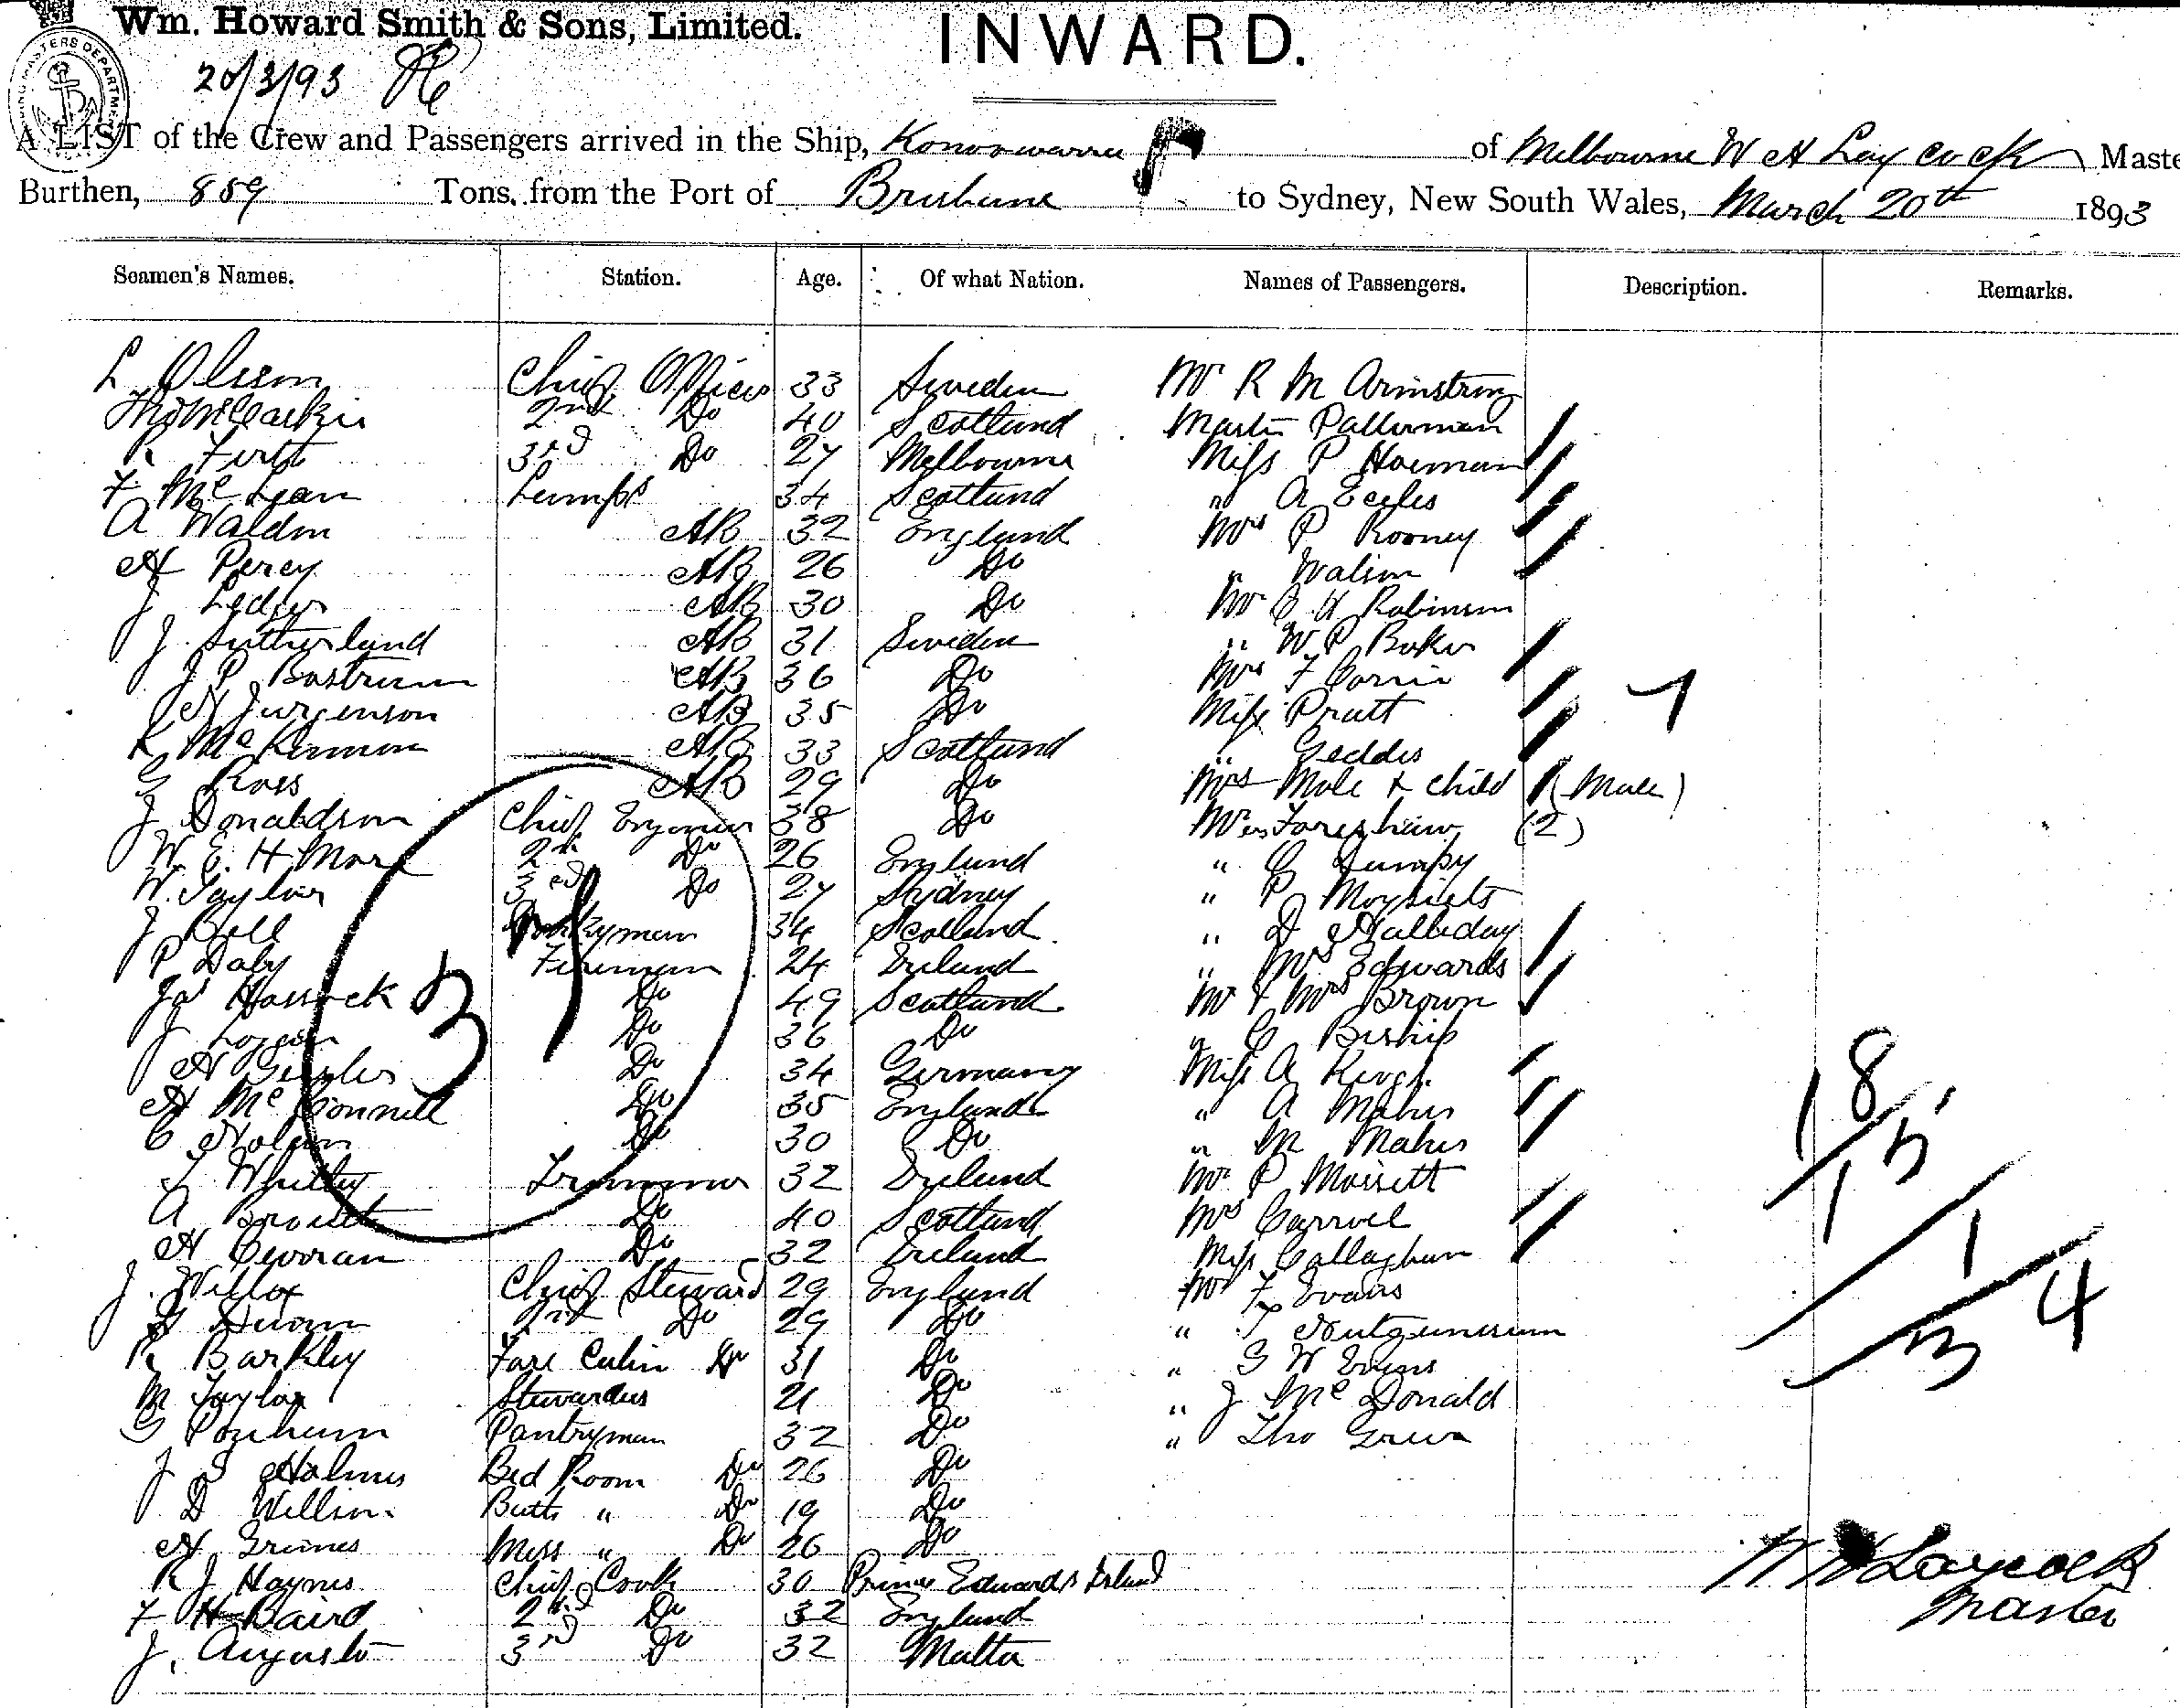 Wm. Howard Smith & Sons, Limited.
INWARD.
20/3/93
A LIST of the Crew and Passengers arrived in the Ship, Konoowarra of Melbourne W H Laycock Maste
Burthen, 859 Tons, from the Port of Brisbane to Sydney, New South Wales, March 20th 1893
Seamen's Names. Station. Age. Of what Nation. Names of Passengers. Description. Remarks.
L Olsson Chief Officer 33 Sweden Mr R M Armstrong
2nd Do 40 Scotland Master
R Firth 3rd Do 27 Melbourne Miss P
F McLean Lamps 34 Scotland " A Eccles
A Waldon AB 32 England Mrs P Rooney
H Percy AB 26 Do "
J Ledger AB 30 Do Mr C H Robinson
J Sutherland AB 31 Sweden " W P Baker
J P Bostrum AB 36 Do Mrs F Corrie
H Jurgenson AB 35 Do Miss Pratt
K McKinnon AB 33 Scotland " Geddes
G Ross AB 29 Do Mrs Mole & Child (Male)
J Donaldson Chief Engineer 38 Do Foreshaw (2)
W. E. H. 2nd Do 26 England " C
W. Taylor 3rd Do 27 Sydney " P
J Bell Donkeyman 34 Scotland " D Halliday
P Daly Fireman 24 Ireland " Mrs Edwards
Jas Do 49 Scotland Mr & Mrs Brown
J Logan Do 36 Do " C Biship
H Do 34 Germany Miss A
H McConnell Do 35 England " A Maher
C Do 30 Do " M Maher
T Whitty Trimmer 32 Ireland Mr P
A Do 40 Scotland Mrs Carroll
H Do 32 Ireland Miss Callaghan
J. Willox Chief Steward 29 England Mr F Evans
2nd Do 29 Do "
R Barkley Fore Cabin Do 31 Do " G W Evans
M Taylor Stewardess 21 Do " J McDonald
G Pantryman 32 Do " Tho
J S Holmes Bed Room Do 26 Do
D Bath " Do 19 Do
H Grimes Mess " Do 26 Do
R J Haynes Chief Cook 30 Prince Edwards Island
F H Baird 2nd Do 32 England
J. Augusto 3rd Do 32 Malta
7
31
18
15
1
1
34
W H Laycock
Master